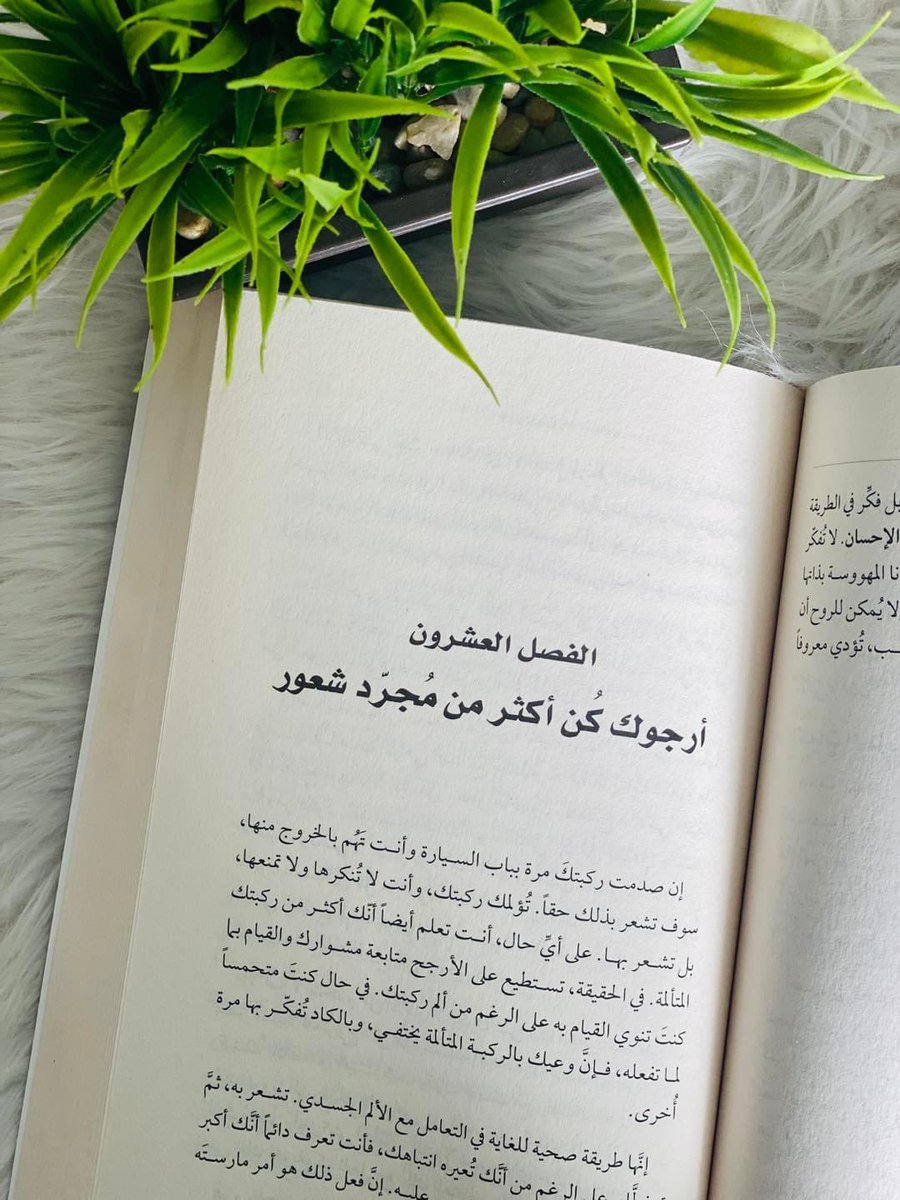 الفصل العشرون
أرجوك كُن أكثر من مُجرّد شعور
إن صدمت ركبتكَ مرة بباب السيارة وأنت تَهُم بالخروج منها،
سوف تشعر بذلك حقاً. تُؤلمك ركبتك، وأنت لا تُنكرها ولا تمنعها،
بل تشعر بها. على أيِّ حال، أنت تعلم أيضاً أنّك أكثر من ركبتك
المتألمة. في الحقيقة، تستطيع على الأرجح متابعة مشوارك والقيام بما
كنتَ تنوي القيام به على الرغم من ألم ركبتك. في حال كنتَ متحمساً
لما تفعله، فإنَّ وعيك بالركبة المتألمة يختفي، وبالكاد تُفكّر بها مرة
أُخرى.
إنَّها طريقة صحية للغاية في التعامل مع الألم الجسدي. تشعر به، ثمَّ
على الرغم من أنَّك تُعيره انتباهك، فأنت تعرف دائماً أنَّك أكبر
عليه. إنَّ فعل ذلك هو أمر مارستَه
بل فكِّر في الطريقة
الإحسان. لا تُفكّر
نا المهووسة بذاتها
لا يُمكن للروح أن
ـب، تُؤدي معروفاً